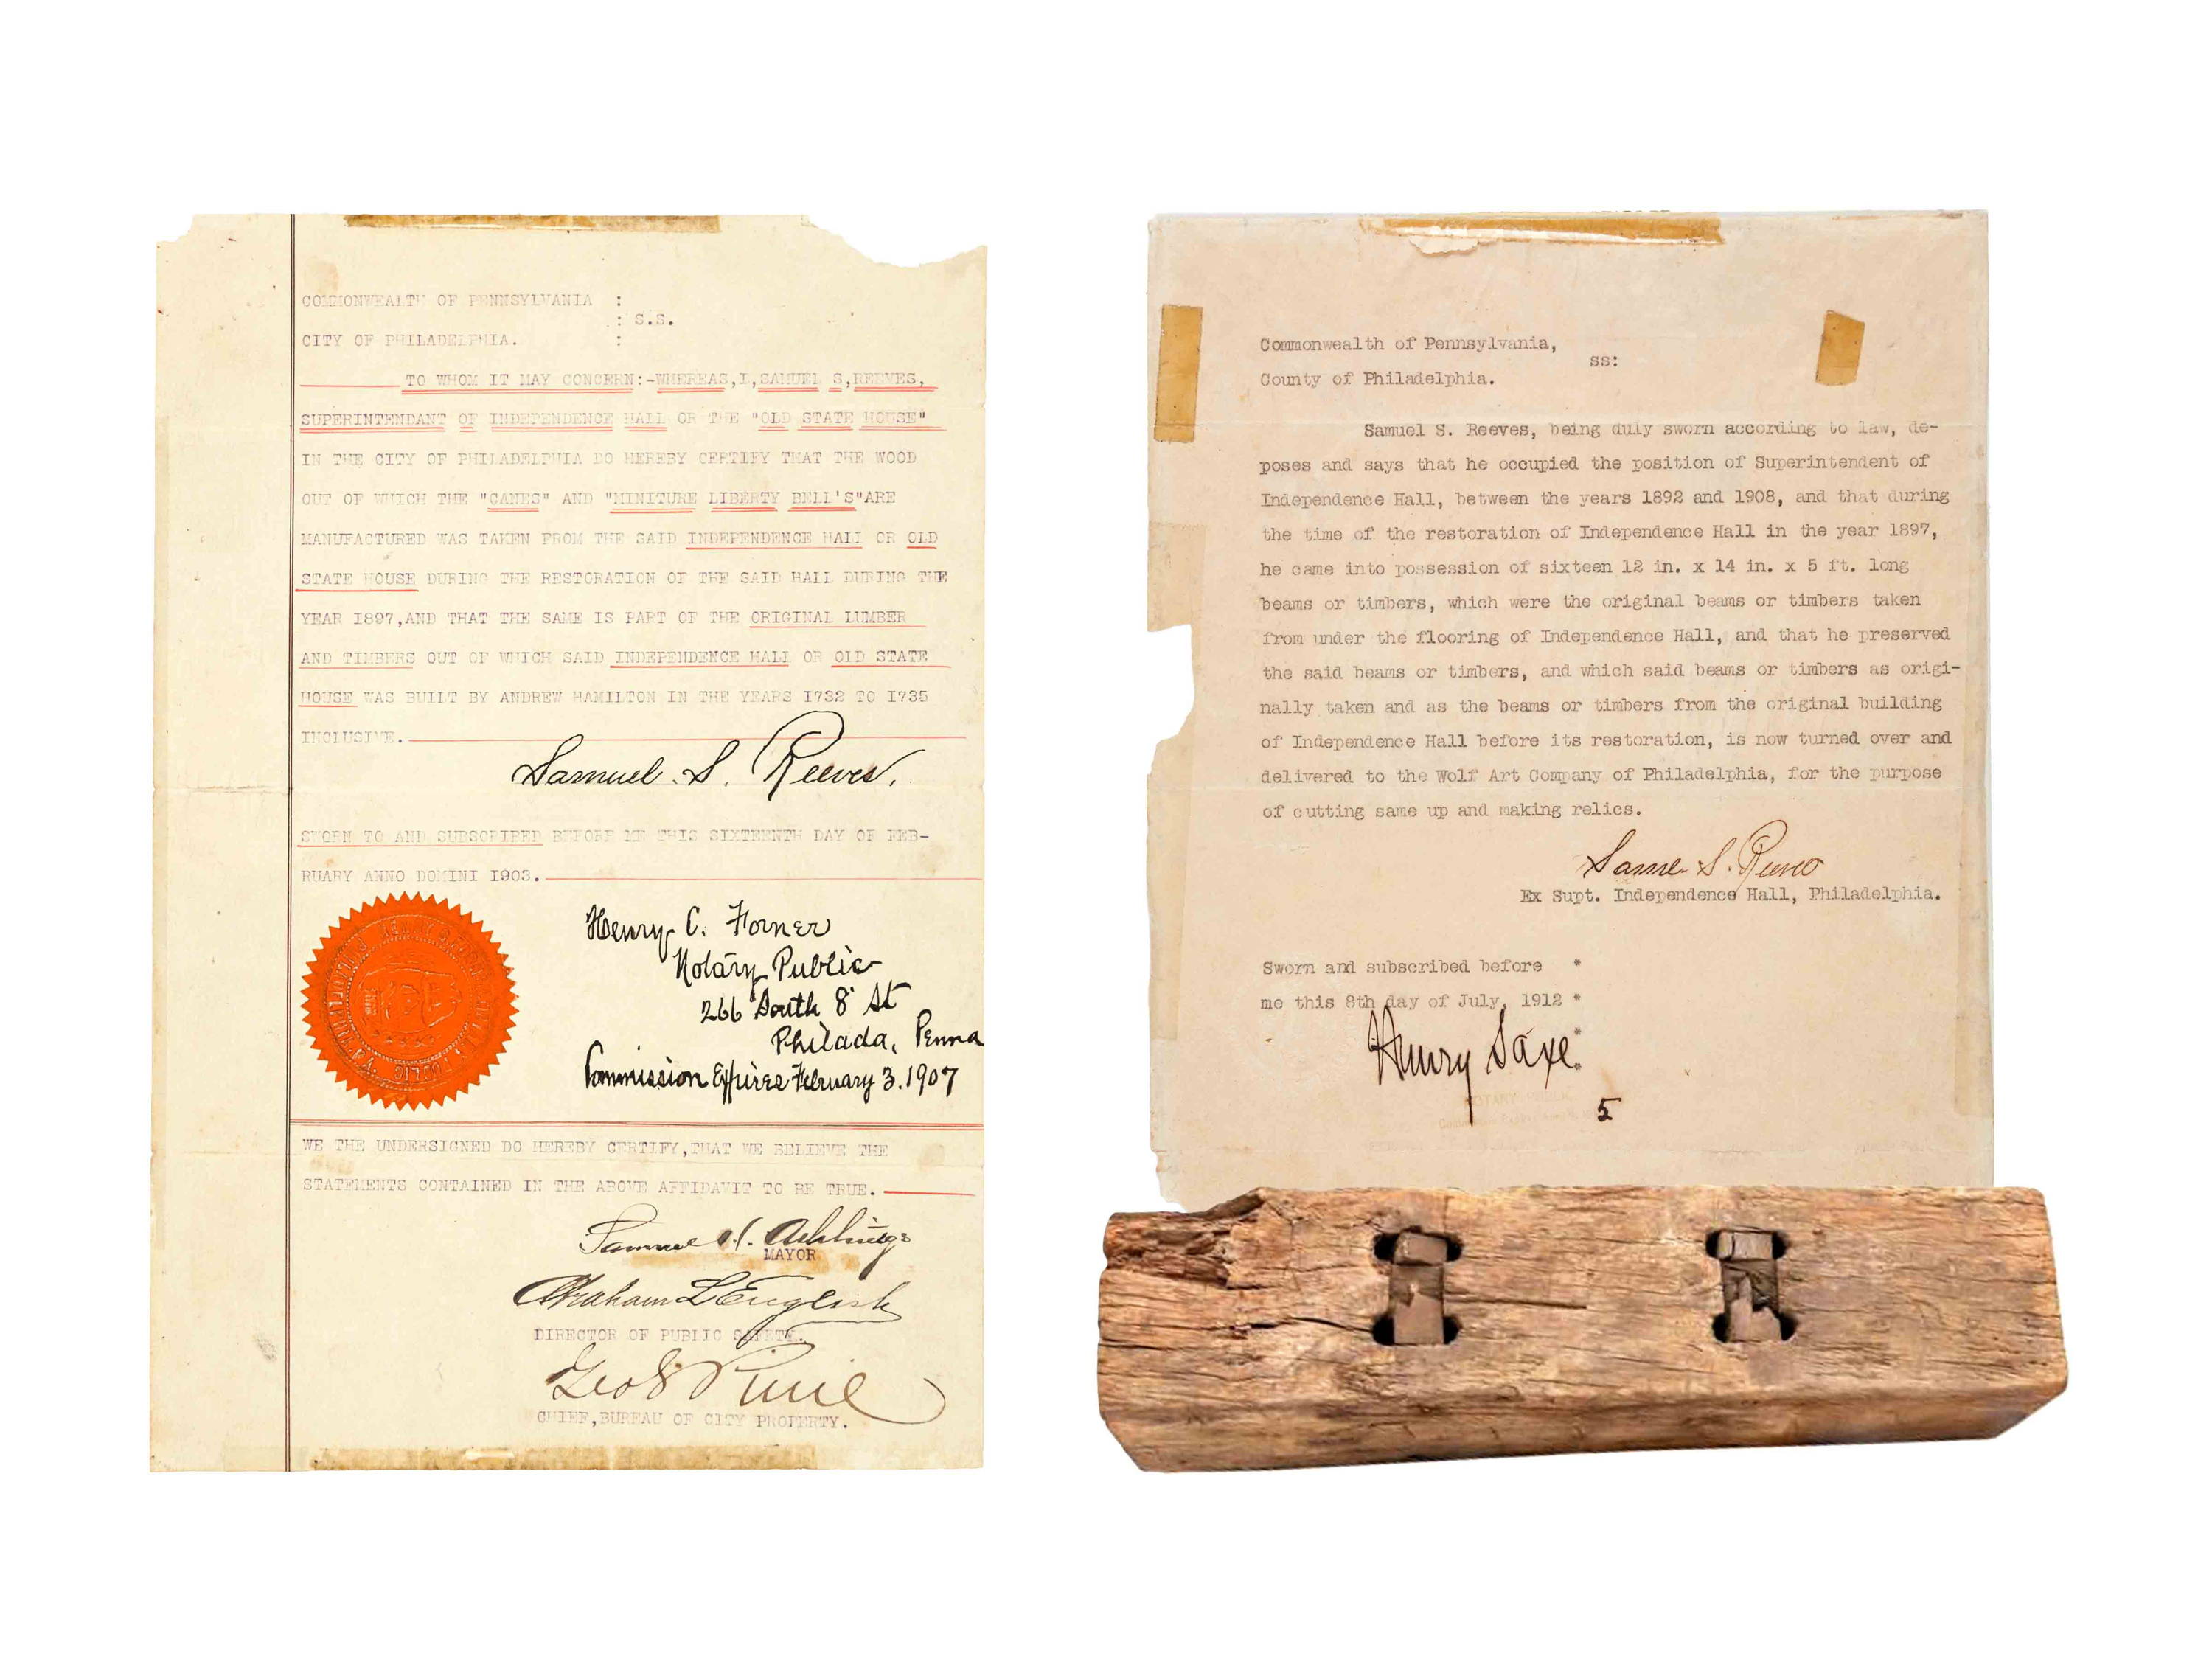 COMMONWEALTH OF PENNSYLVANIA :
: S.S.
CITY OF PHILADELPHIA. :
TO WHOM IT MAY CONCERN:-WHEREAS,I,SAMUEL S,REEVES,
SUPERINTENDANT OF INDEPENDENCE HALL OR THE "OLD STATE HOUSE"
IN THE CITY OF PHILADELPHIA DO HEREBY CERTIFY THAT THE WOOD
OUT OF WHICH THE "CANES" AND "MINITURE LIBERTY BELL'S"ARE
MANUFACTURED WAS TAKEN FROM THE SAID INDEPENDENCE HALL OR OLD
STATE HOUSE DURING THE RESTORATION OF THE SAID HALL DURING THE
YEAR I897,AND THAT THE SAME IS PART OF THE ORIGINAL LUMBER
AND TIMBERS OUT OF WHICH SAID INDEPENDENCE HALL OR OLD STATE
HOUSE WAS BUILT BY ANDREW HAMILTON IN THE YEARS I732 TO I735
INCLUSIVE.
Samuel. S. Reeves.
SWORN TO AND SUBSCRIBED BEFORE ME THIS SIXTEENTH DAY OF FEB-
RUARY ANNO DOMINI I903.
Henry C. Forner
Notary Public
266 South 8" St
Philada, Penna
Commission Expires February 3. 1907
WE THE UNDERSIGNED DO HEREBY CERTIFY,THAT WE BELIEVE THE
STATEMENTS CONTAINED IN THE ABOVE AFFIDAVIT TO BE TRUE.
MAYOR
Abraham L English
DIRECTOR OF PUBLIC SAFETY.
CHIEF,BUREAU OF CITY PROPERTY.
Commonwealth of Pennsylvania,
ss:
County of Philadelphia.
Samuel S. Reeves, being duly sworn according to law, de-
poses and says that he occupied the position of Superintendent of
Independence Hall, between the years 1892 and 1908, and that during
the time of the restoration of Independence Hall in the year 1897,
he came into possession of sixteen 12 in. x 14 in. x 5 ft. long
beams or timbers, which were the original beams or timbers taken
from under the flooring of Independence Hall, and that he preserved
the said beams or timbers, and which said beams or timbers as origi-
nally taken and as the beams or timbers from the original building
of Independence Hall before its restoration, is now turned over and
delivered to the Wolf Art Company of Philadelphia, for the purpose
of cutting same up and making relics.
Ex Supt. Independence Hall, Philadelphia.
Sworn and subscribed before *
me this 8th day of July, 1912 *
Henry Saxe *
NOTARY PUBLIC
5